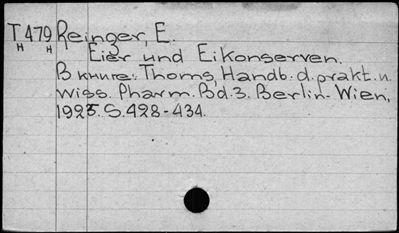 T479 Reinger, E.
н н
Eier und Eikonserven.
В книге: Thoms, Handb. d. prakt. u.
wiss. Pharm. Bd. 3. Berlin-Wien,
1925. S. 428-434.